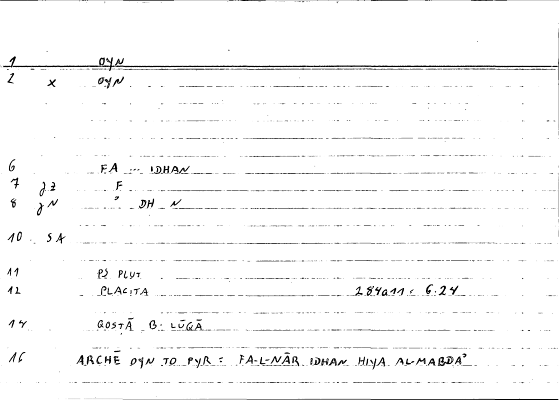 1 OYN
2 x OYN
6 FA ... IDHAN
7 gz F
8 gN ʾ DH N
10 SA
11 PS PLUT
12 PLACITA 284a11 < 6.24
14 QOSṬĀ B. LŪQĀ
16 ARCHĒ OYN TO PYR = FA-L-NĀR IDHAN HIYA AL-MABDAʾ